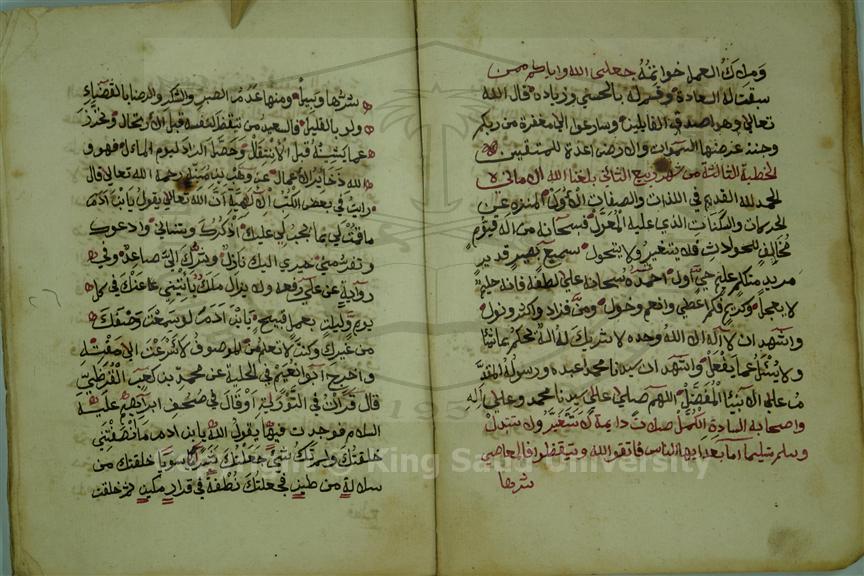 وملاك العمل خواتمه جعلني الله واياكم ممن
سبقت له السعادة وقسم له بالحسنى وزيادة قال الله
تعالى وهو اصدق القايلين وسارعوا الى مغفرة من ربكم
وجنة عرضها السموات والارض اعدت للمتقين
الخطبة الثالثة من شهر ربيع الثاني بلغنا الله الاماني
الحمد لله القديم في اللذات والصفات الاول المنزه عن
الحركات والسكنات الذي عليه المعول فسبحانه من اله قيوم
مخالف للحوادث فلا يتغير ولا يتحول سميع بصير قدير
مريد متكلم عليم حي اول احمده سبحانه على لطفه فانه حليم
لا يعجل وكريم فكم اعطى وانعم وخول ومن فزاد واكثر ونول
واشهد ان لا اله الا الله وحده لا شريك له اله يحكم بما يشا
ولا يسئل عما يفعل واشهد ان سيدنا محمدا عبده ورسوله المقد
م على الانبياء المفضل اللهم صلي على سيدنا محمد وعلى اله
واصحابه السادة الكمل صلاة دايمة لا تتغير ولا تتبدل
وسلم تسليما اما بعد ايها الناس فاتقوا الله وتيقظوا فالعاصي
شرها
شرها وبيل ومنها عدم الصبر والشكر والرضا بالقضاء
ولو بالقليل فالسعيد من تيقظ لنفسه قبل الارتحال وتحرز
عما يشينه قبل الانتقال وحصل الزاد ليوم المال فهو و
الله ذخاير الاعمال عن وهب بن منبه رحمه الله تعالى قال
رايت في بعض الكتب الالهية ان الله تعالى يقول يا ابن ادم
ما قمت لي بما يجب لي عليك اذكرك وتنساني وادعوك
وتفر مني خيري اليك نازل وشرك الي صاعد وفي
رواية عن علي رفعه ولا يزال ملك ياتيني عنك في كل
يوم وليلة بعمل قبيح يا ابن ادم لو سمعت وصفك
من غيرك وكنت لا تعلم من الموصوف لاسرعت الى مقته
واخرج ابو نعيم في الحلية عن محمد بن كعب القرظي
قال قرات في التورية او قال في صحف ابراهيم عليه
السلام فوجدت فيها يقول الله يا ابن ادم ما انصفتني
خلقتك ولم تك شيئ جعلتك بشرا سويا خلقتك من
سلالة من طين فجعلتك نطفة في قرار مكين ثم خلقت
King Saud University
195